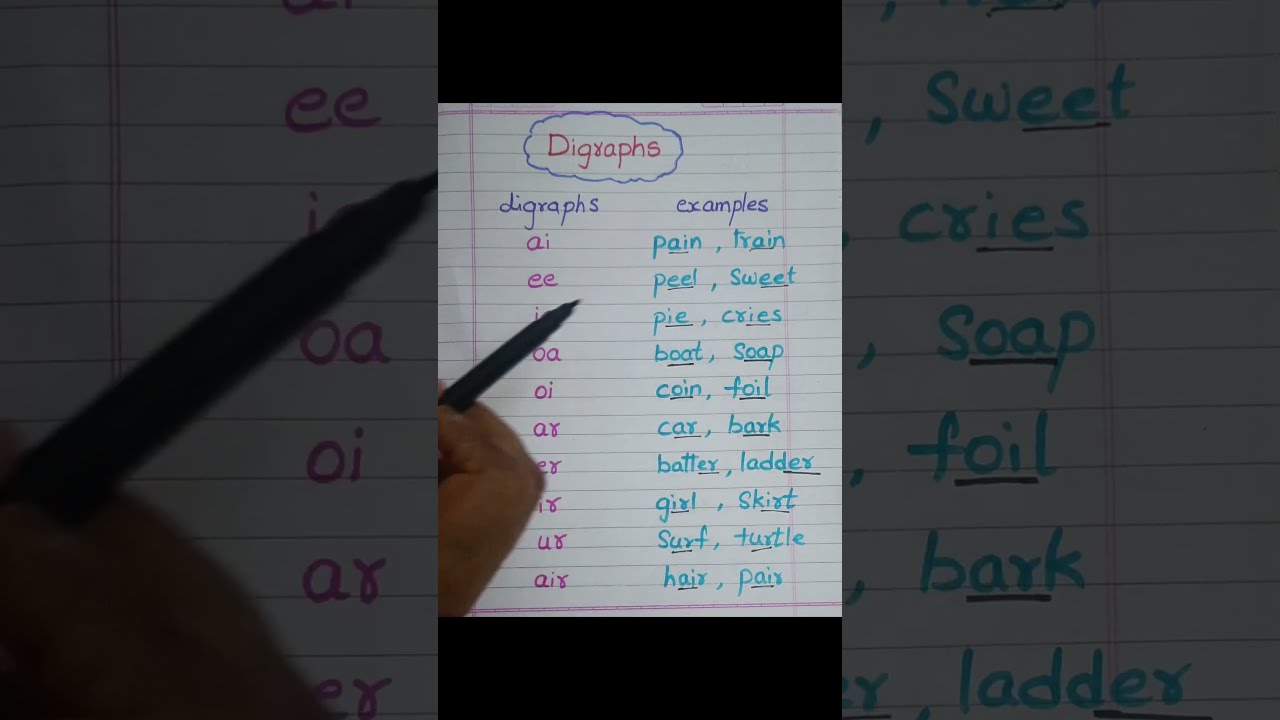 Digraphs
digraphs examples
ai pain, train
ee peel, Sweet
pie, cries
oa boat, Soap
oi coin, foil
ar car, bark
er batter, ladder
ir girl, Skirt
ur Surf, turtle
air hair, pair